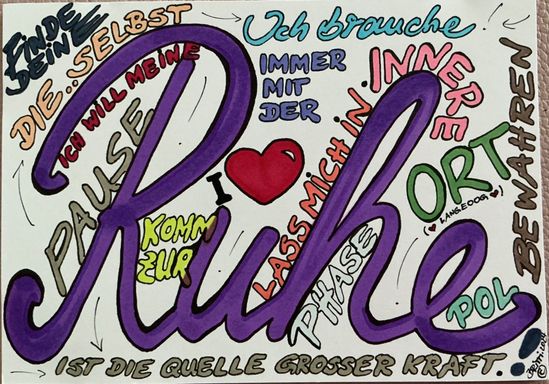 FINDE
DEINE
DIE..SELBST
Ich brauche
!
ICH WILL MEINE
IMMER
MIT
DER
INNERE
BEWAHREN
PAUSE
I ❤
LASS MICH IN
ORT
(♥ LANGEOOG ♥)
KOMM
ZUR
PHASE
POL
Ruhe
IST DIE QUELLE GROSSER KRAFT.